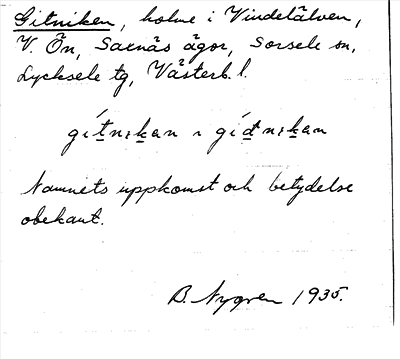 Gitniken, holme i Vindelälven,
V. Ön, Saxnäs ägor, Sorsele sn,
Lycksele tg, Västerb. l.
gítnikan ı gídnikan
Namnets uppkomst och betydelse
obekant.
B. Nygren 1935.